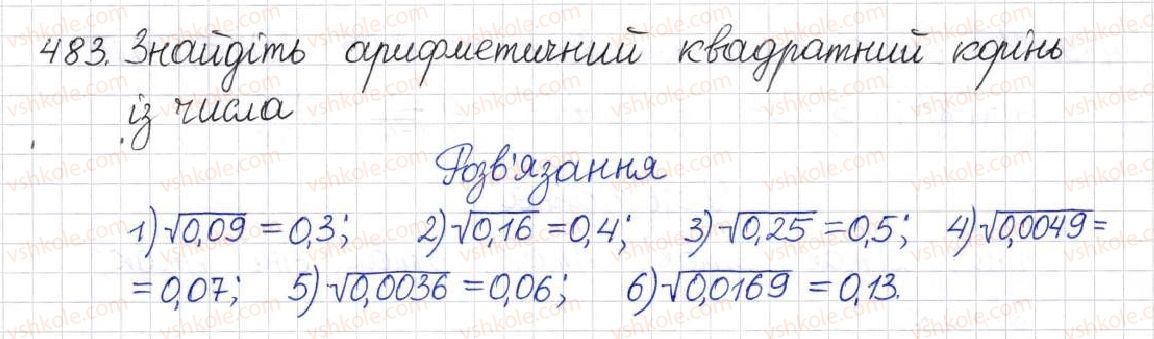 483. Знайдіть арифметичний квадратний корінь
із числа
Розв'язання
1) √0,09 = 0,3; 2) √0,16 = 0,4; 3) √0,25 = 0,5; 4) √0,0049 =
= 0,07; 5) √0,0036 = 0,06; 6) √0,0169 = 0,13.